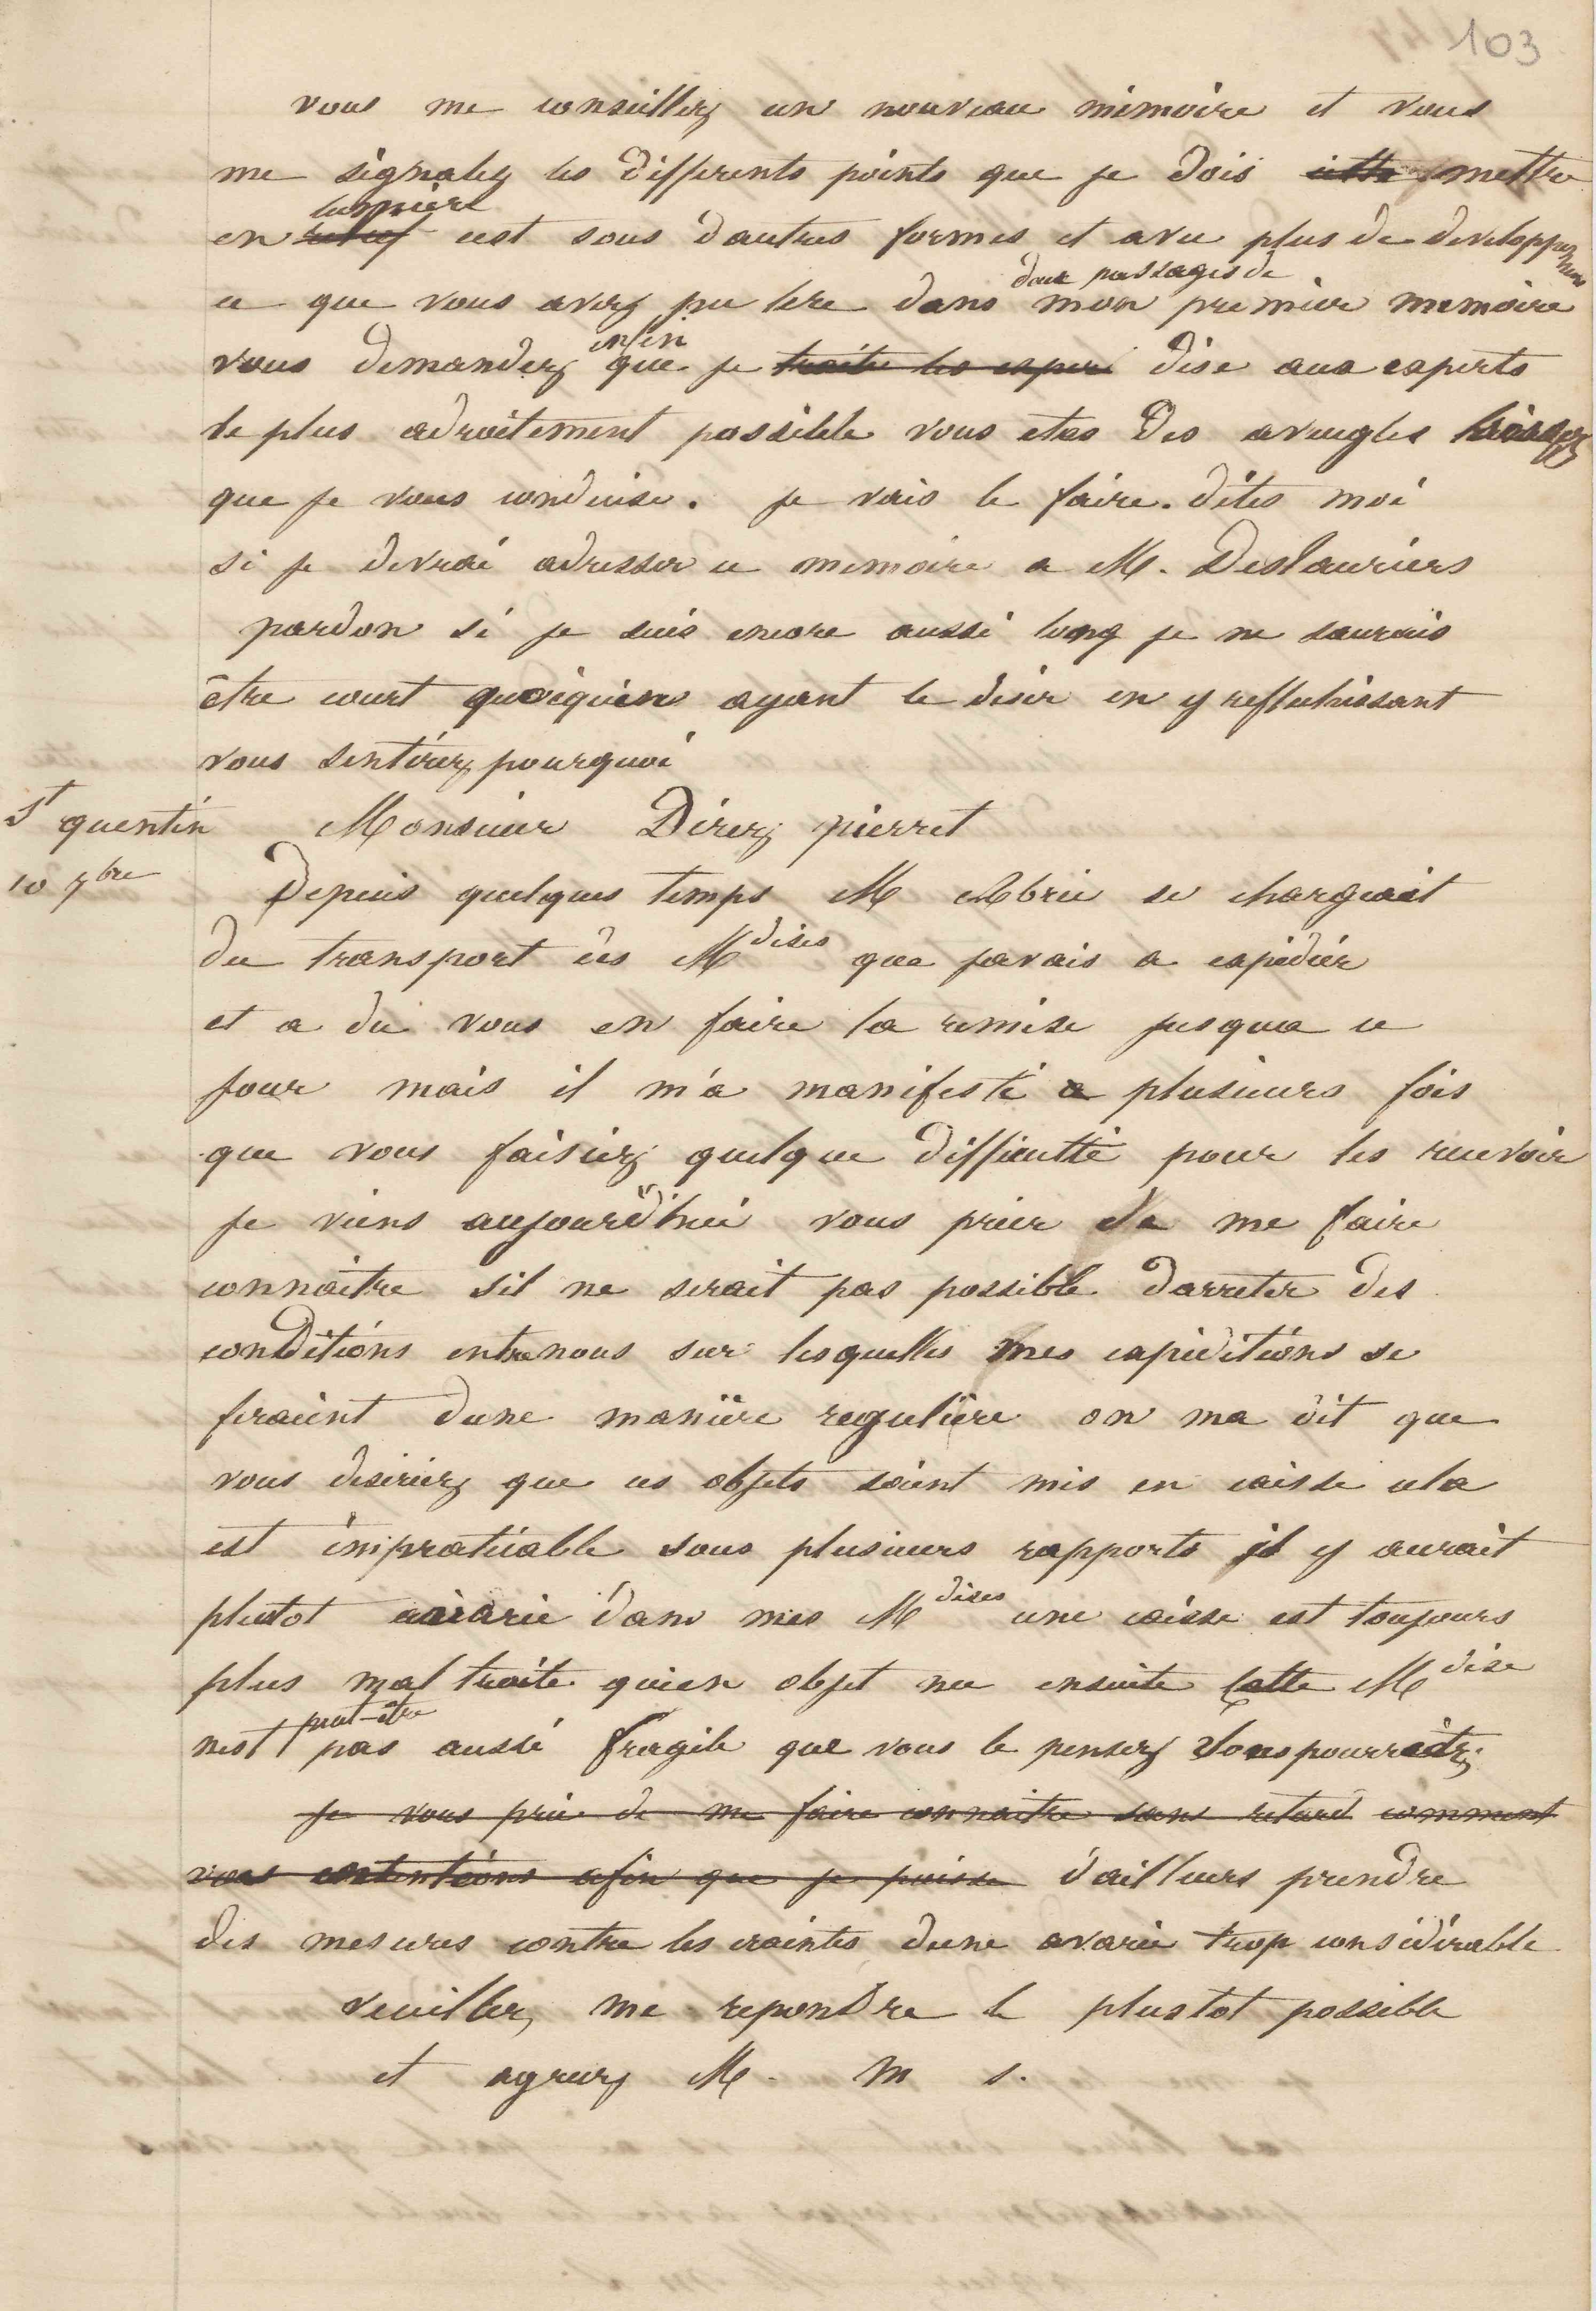 103
vous me conseillez un nouveau mémoire et vous
me signalez les differents points que je dois mettre
lumière
en relief cest sous dautres formes et avec plus de developpemens
deux passages de
ce que vous avez pu lire dans mon premier memoire
enfin
vous demandez que je traite les exper dise aux experts
le plus adroitement possible vous etes des aveugles laissez
que je vous conduise. je vais le faire. dites moi
si je devrai adresser ce memoire a M. Deslauriers
pardon si je suis encore aussi long je ne saurais
être court quoiquen ayant le désir en y reflechissant
vous sentirez pourquoi
St quentin Monsieur Direz pierret
10 7bre Depuis quelques temps M Abrié se chargeait
du transport des Mdises que javais a expédier
et a du vous en faire la remise jusqua ce
jour mais il m'a manifesté a plusieurs fois
que vous faisiez quelque difficulté pour les recevoir
je viens aujourd'hui vous prier de me faire
connaître sil ne serait pas possible darreter des
conditions entre nous sur lesquelles mes expéditions se
feraient dune manière regulière on ma dit que
vous desiriez que ces objets soient mis en caisse cela
est impraticable sous plusieurs rapports il y aurait
plutot avarie dans mes Mdises une caisse est toujours
plus mal traite quun objet nu ensuite cette Mdise
peut-être
nest pas aussi fragile que vous le pensez vous pourriez
je vous prie de me faire connaitre sans retard comment
vos intentions afin que je puisse d'ailleurs prendre
des mesures contre les craintes dune avarie trop considérable
veuillez me repondre le plustot possible
et agreez M. m s.